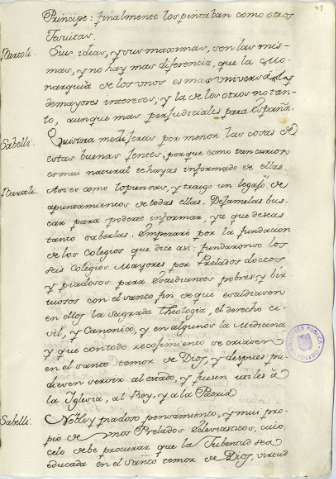 Principe: finalmente los pintan como otros
Tarucas.
Bartoli. Sus ideas, y sus maximas, son las mis-
mas, y no hay mas diferencia, que la Mo-
narquia de los unos es mas universal, y
de mayores intereses, y la de los otros no tan-
to, aunque mas perjudiciales para España.
Sabelli. Quisiera me dixeras por menor las cosas de
estas buenas gentes, porque como tan curioso
es mui natural te hayas informado de ellas.
Bartoli. Asi es como lo piensas, y traigo un legajo de
apuntamientos de todas ellas. Dejamelas bus-
car para poderte informar, ya que deseas
tanto saberlas. Empezaré por la fundacion
de los Colegios que dice asi: fundaronse los
seis Colegios Mayores por Prelados doctos,
y piadosos para Estudiantes pobres, y vir
tuosos con el santo fin de que estudiasen
en ellos la Sagrada Theologia, el derecho ci-
vil, y Canonico, y en algunos la Medicina
y que con todo recogimiento se criasen
en el santo temor de Dios, y despues pu-
diesen servir al estado, y fuesen utiles à
la Yglesia, al Rey, y a la Patria
Sabelli. Noble y piadoso pensamiento, y mui pro-
pio de unos Prelados Eclesiasticos, cuio
celo debe procurar que la Jubentud sea
educada en el santo temor de Dios, virtud